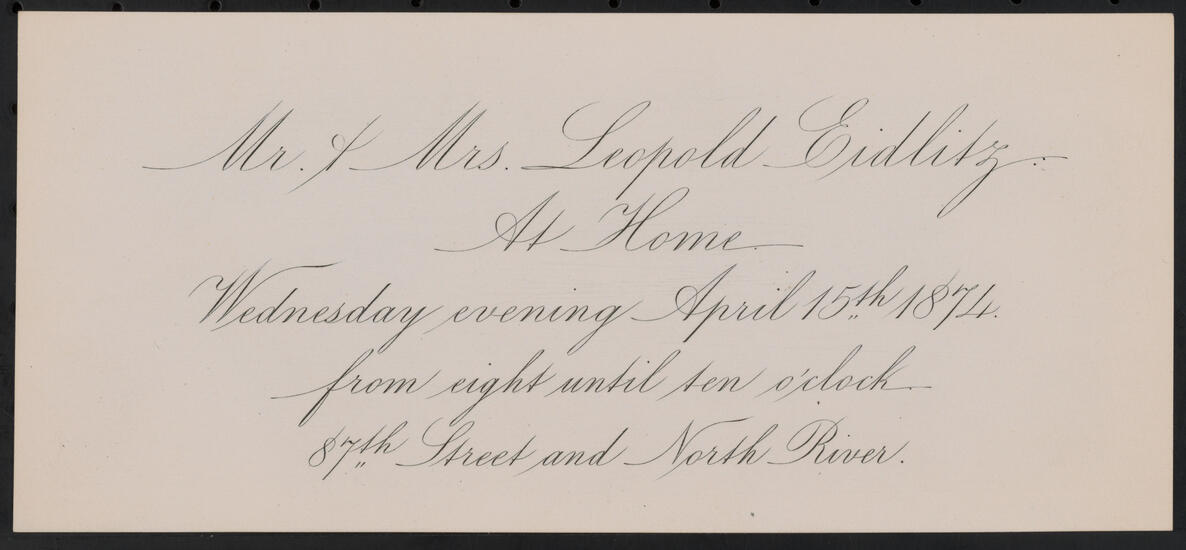 Mr. & Mrs. Leopold Eidlitz.
At Home
Wednesday evening April 15th 1874.
from eight until ten o'clock
87th Street and North River.